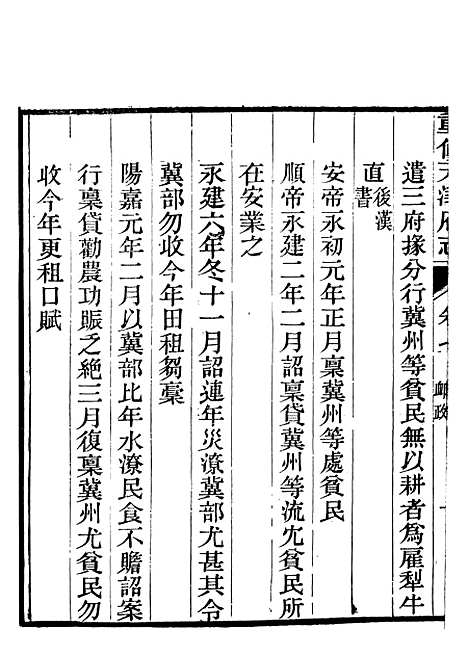 重修天津府志 卷七 衈政
遣三府掾分行冀州等貧民無以耕者爲雇犁牛
直後漢書
安帝永初元年正月稟冀州等處貧民
順帝永建二年二月詔稟貸冀州等流宂貧民所
在安業之
永建六年冬十一月詔連年災潦冀部尤甚其令
冀部勿收今年田租芻稾
陽嘉元年二月以冀部比年水潦民食不贍詔案
行稟貸勸農功賑乏絶三月復稟冀州尤貧民勿
收今年更租口賦